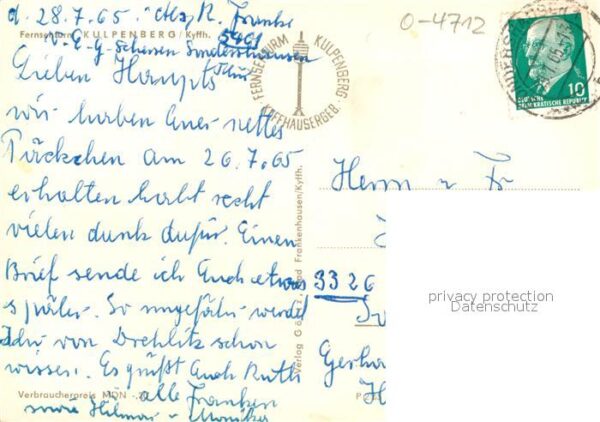 d. 28.7.65. Abs. R. Franke
Fernsehturm KULPENBERG / Kyffh. 5401
V-E-G-Schersen Sondershausen
Thür
FERNSEHTURM KULPENBERG
KYFFHÄUSERGEB.
0-4712
10
DEUTSCHE
DEMOKRATISCHE REPUBLIK
Lieben Haupts
wir haben Euer nettes
Päckchen am 26.7.65
erhalten habt recht
vielen dank dafür. Einen
Brief sende ich Euch etwas
später. So ungefähr werdet
Ihr von Drehlitz schon
wissen. Es grüßt Euch Ruth
alle Franken
sowie Hilmar u Moniker
Verbraucherpreis MDN -,20
Verlag Bad Frankenhausen/Kyffh.
Herrn u Fr
3326
Gerha
privacy protection
Datenschutz